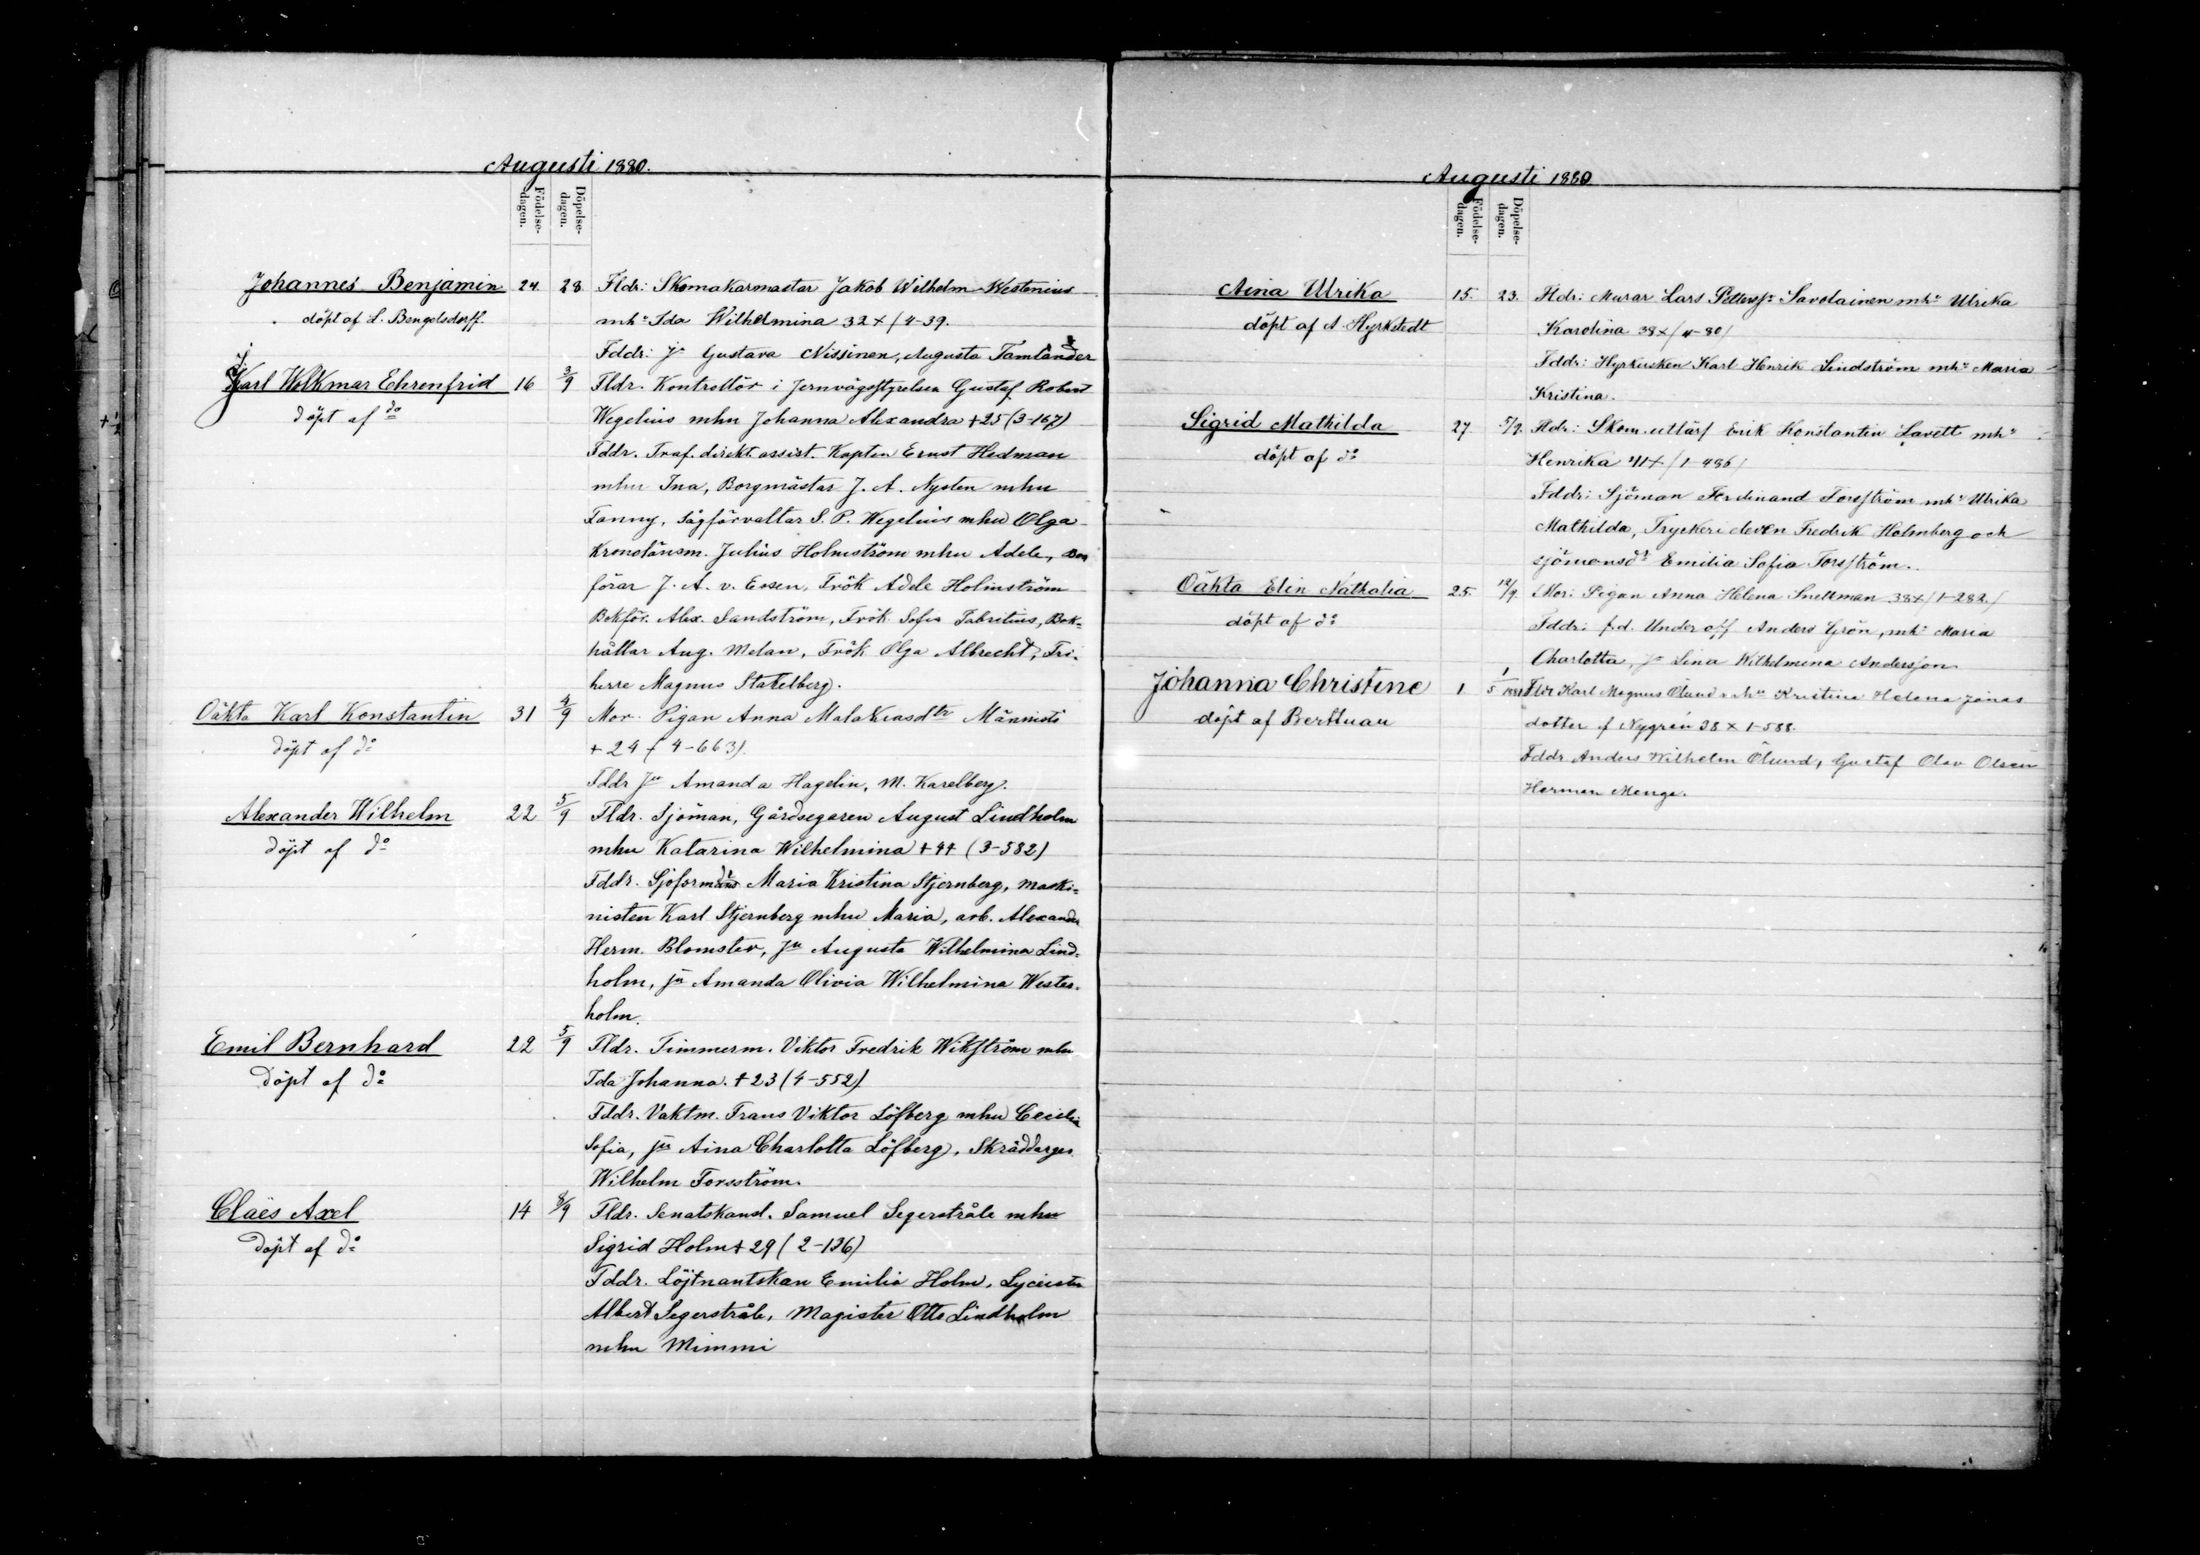 Augusti 1880.
Födelse-dagen.
Döpelse-dagen.
Johannes Benjamin 24. 28. Fldr: Skomakarmästar Jakob Wilhelm Westenius
döpt af L. Bengelsdorff. mhu Ida Wilhelmina 32 + (4-39.
Fddr: jr Gustava Nissinen, Augusta Tamlander
Karl Wolkmar Ehrenfrid 16 3/9 Fldr. Kontrollör i Jernvägsstyrelsen Gustaf Robert
döpt af do Wegelius mhu Johanna Alexandra +25 (3-167)
Fddr. Traf. direkt. assist. Kapten Ernst Hedman
mhu Ina, Borgmästar J. A. Nysten mhu
Fanny, Sågförvaltar S. P. Wegelius mhu Olga
Kronolänsm. Julius Holmström mhu Adele,
förar J. A. v. Essen, Frök Adele Holmström
Bokför. Alex. Sandström, Frök. Sofie Fabritius, Bok-
hållar Aug. Melan, Frök Olga Albrecht, Fri-
herre Magnus Stakelberg.
Oäkta Karl Konstantin 31 4/9 Mor. Pigan Anna Malakiasdtr Männistö
döpt af do + 24 (4-663).
Fddr Jr Amanda Hagelin, M. Karelberg.
Alexander Wilhelm 22 5/9 Fldr. Sjöman, Gårdsegaren August Lindholm
döpt af do mhu Katarina Wilhelmina +44 (3-382)
Fddr. Maria Kristina Stjernberg, maski-
nisten Karl Stjernberg mhu Maria, arb. Alexander
Herm. Blomster, Jr Augusta Wilhelmina Lind-
holm, jr Amanda Olivia Wilhelmina Wester-
holm.
Emil Bernhard 22 5/9 Fldr. Timmerm. Viktor Fredrik Wikström mhu
döpt af do Ida Johanna. +23 (4-552)
Fddr. Vaktm. Frans Viktor Löfberg mhu Cecilia
Sofia, jr Aina Charlotta Löfberg, Skräddarges.
Wilhelm Forsström.
Claës Axel 14 8/9 Fldr. Senatskansl. Samuel Segerstråle mhu
döpt af do Sigrid Holm + 29 (2-136)
Fddr. Löjtnantskan Emilia Holm, Lyceisten
Albert Segerstråle, Magister Otto Lindholm
mhu Mimmi
Augusti 1880
Födelse-dagen.
Döpelse-dagen.
Aina Ulrika 15. 23. Fldr: Murar Lars Petterss. Savolainen mhu Ulrika
döpt af A. Hyrkstedt Karolina 38 + (4-80)
Fddr: Hyrkusken Karl Henrik Lindström mhu Maria
Kristina.
Sigrid Mathilda 27 5/9. Fldr: Skom. utlärf Erik Konstantin Lavett mhu
döpt af do Henrika 41 + (1-486)
Fddr: Sjöman Ferdinand Forsström mhu Ulrika
Mathilda, Tryckeri eleven Fredrik Holmberg och
sjömansdr Emilia Sofia Forsström.
Oäkta Elin Nathalia 25. 12/9. Mor: Pigan Anna Helena Snellman 38 + (1-282.)
döpt af do Fddr: f.d. Under off Anders Grön, mhu Maria
Charlotta, jr Lina Wilhelmina Andersson
Johanna Christine 1 1/5 1881 Fldr Karl Magnus Ölund o. Hu Kristina Helena Jonas
döpt af Berttuau dotter f Nygrén 38 x 1-588.
Fddr Anders Wilhelm Ölund, Gustaf Olav Olsen
Herman Menge.